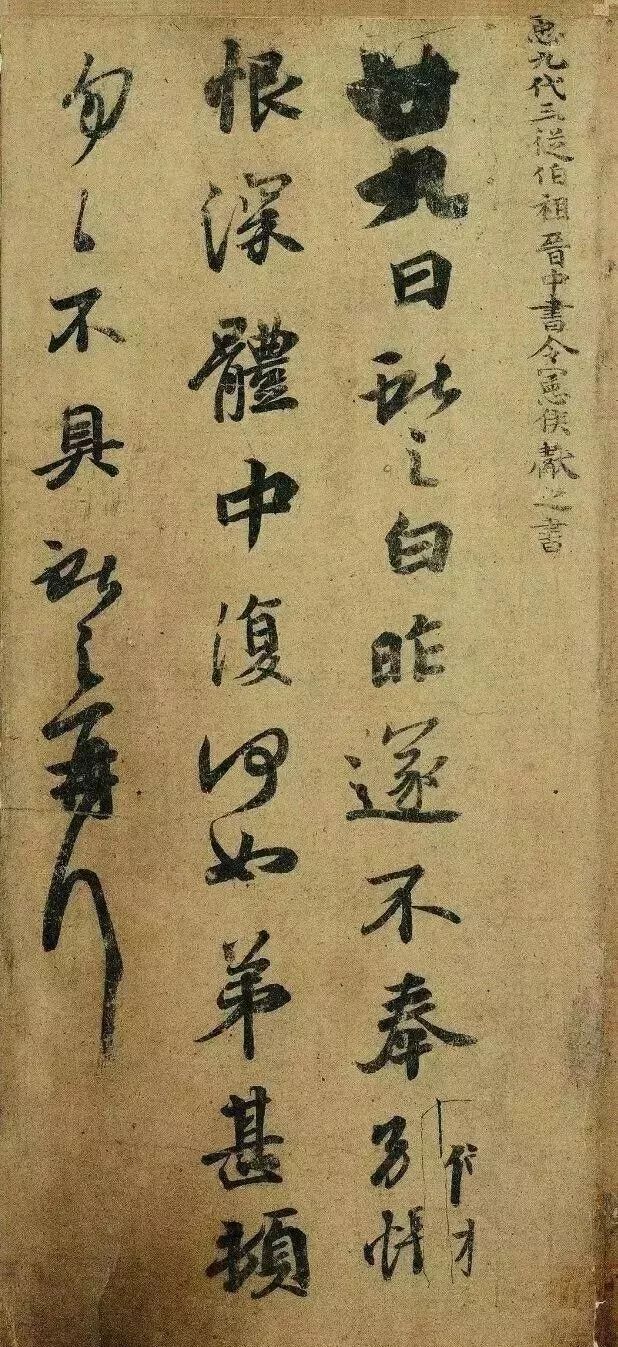 𢘑九代三從伯祖晉中書令憲侯獻之書
廿九日獻之白昨遂不奉別悵
恨深體中復何如弟甚頓
勿々不具獻之再拜